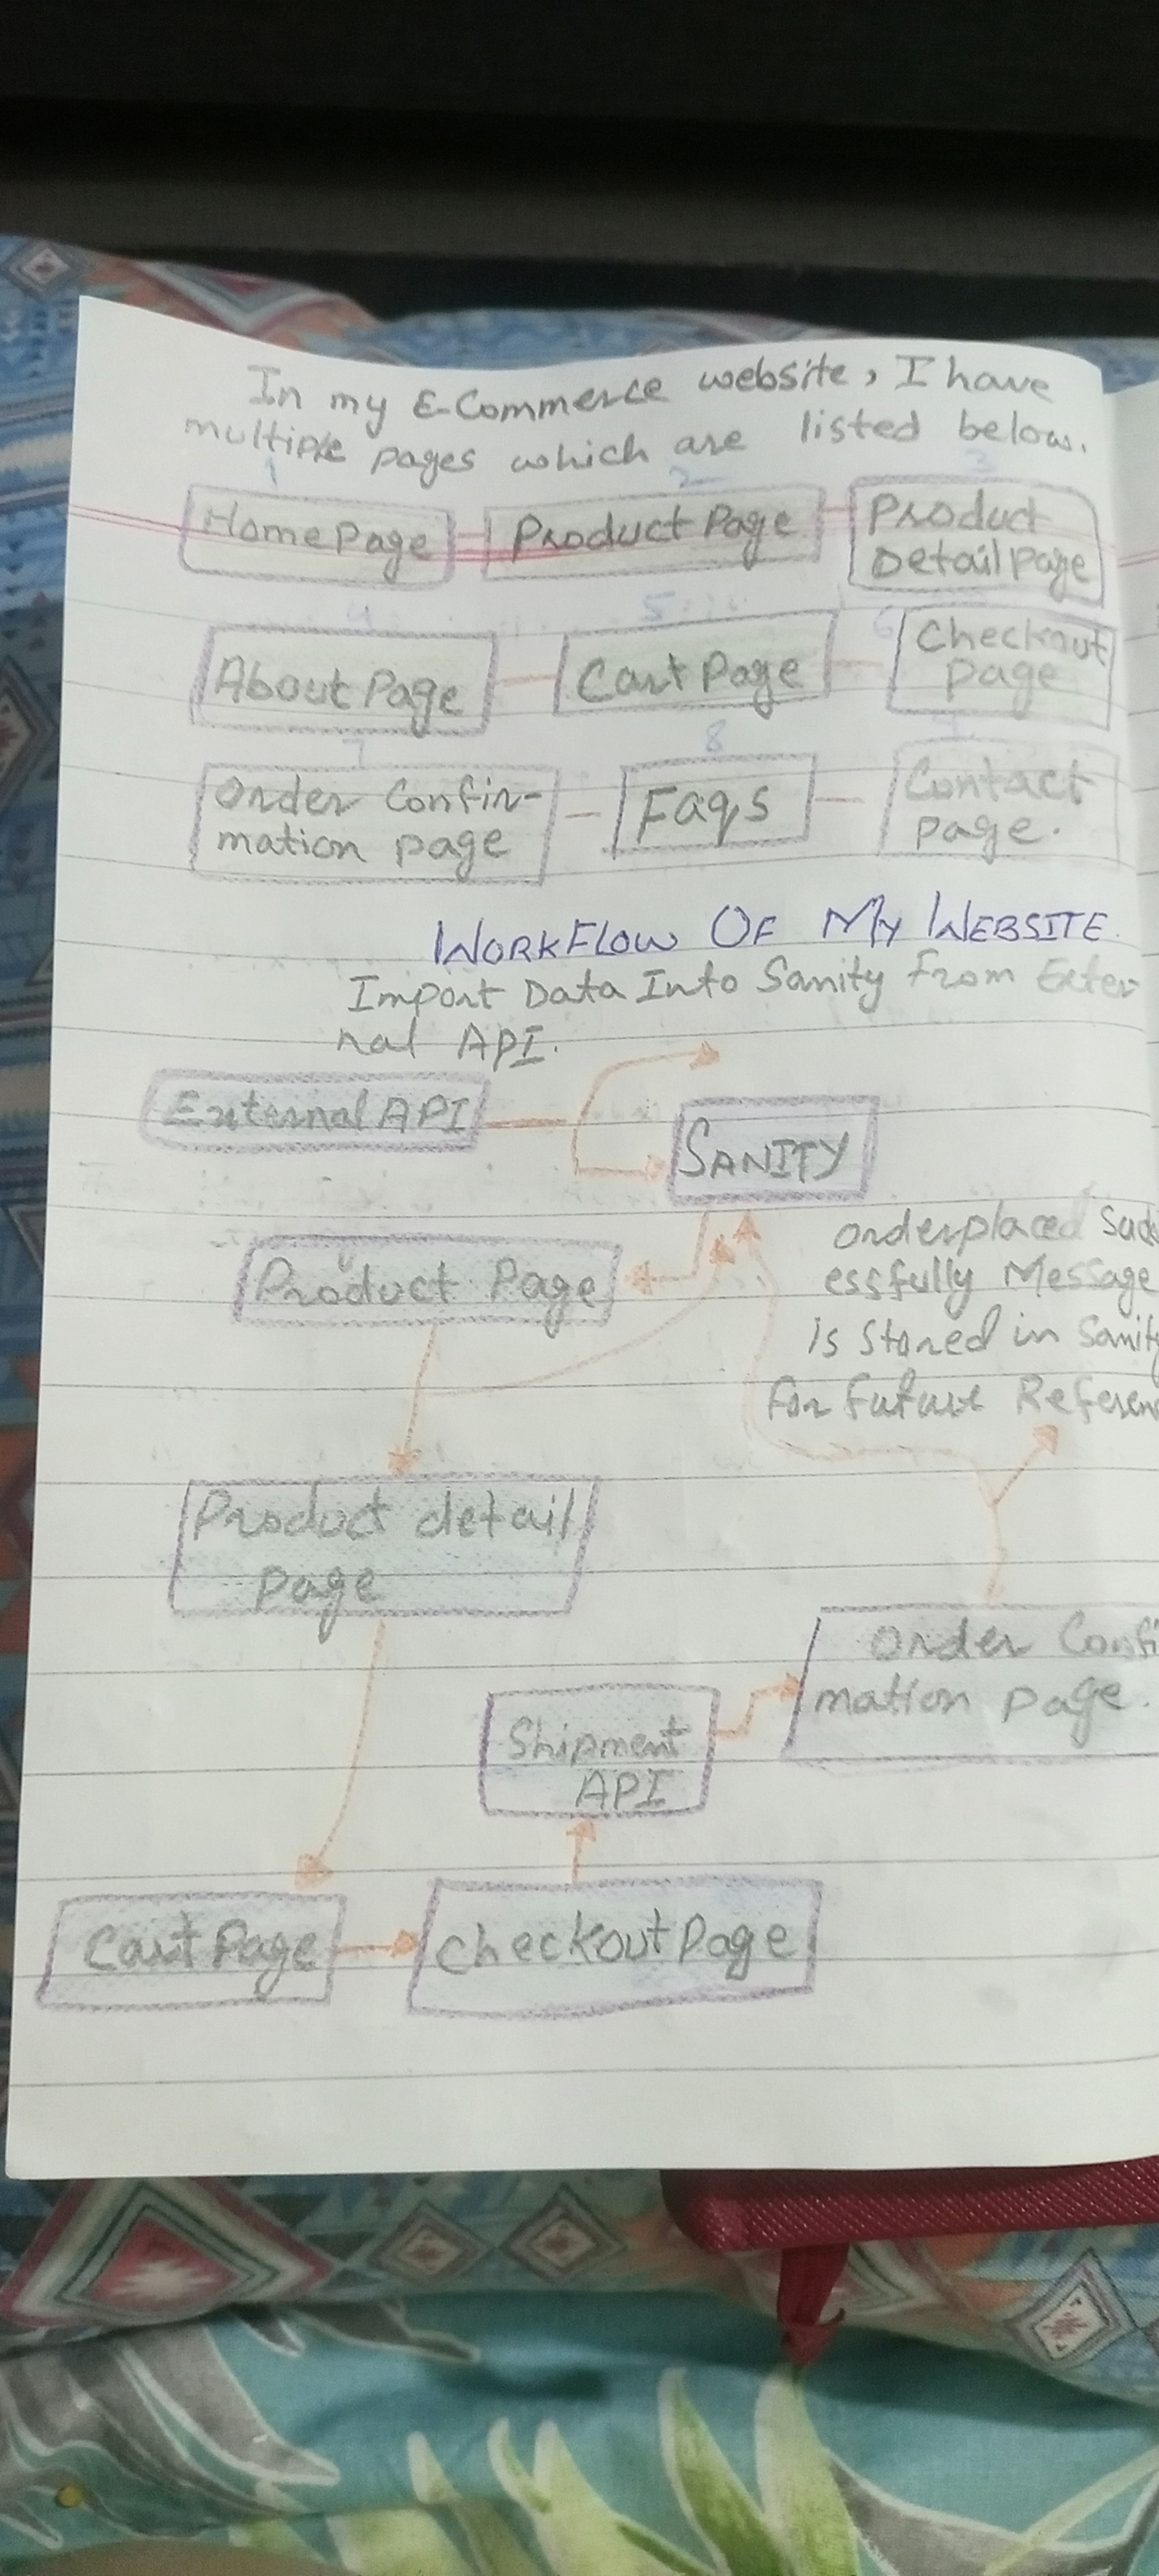 In my E-Commerce website, I have
multiple pages which are listed below.
1 2 3
Home Page Product Page Product
Detail Page
4 5 6
About Page Cart Page Checkout
Page
7 8
Order Confir- Faqs Contact
mation page page.
WORKFLOW OF MY WEBSITE
Import Data Into Sanity From Exter-
nal API.
External API
SANITY
Product Page
Orderplaced
essfully Message
is Stored in
For Future
Product detail
page
Order
mation page.
Shipment
API
Cart Page
Checkout Page